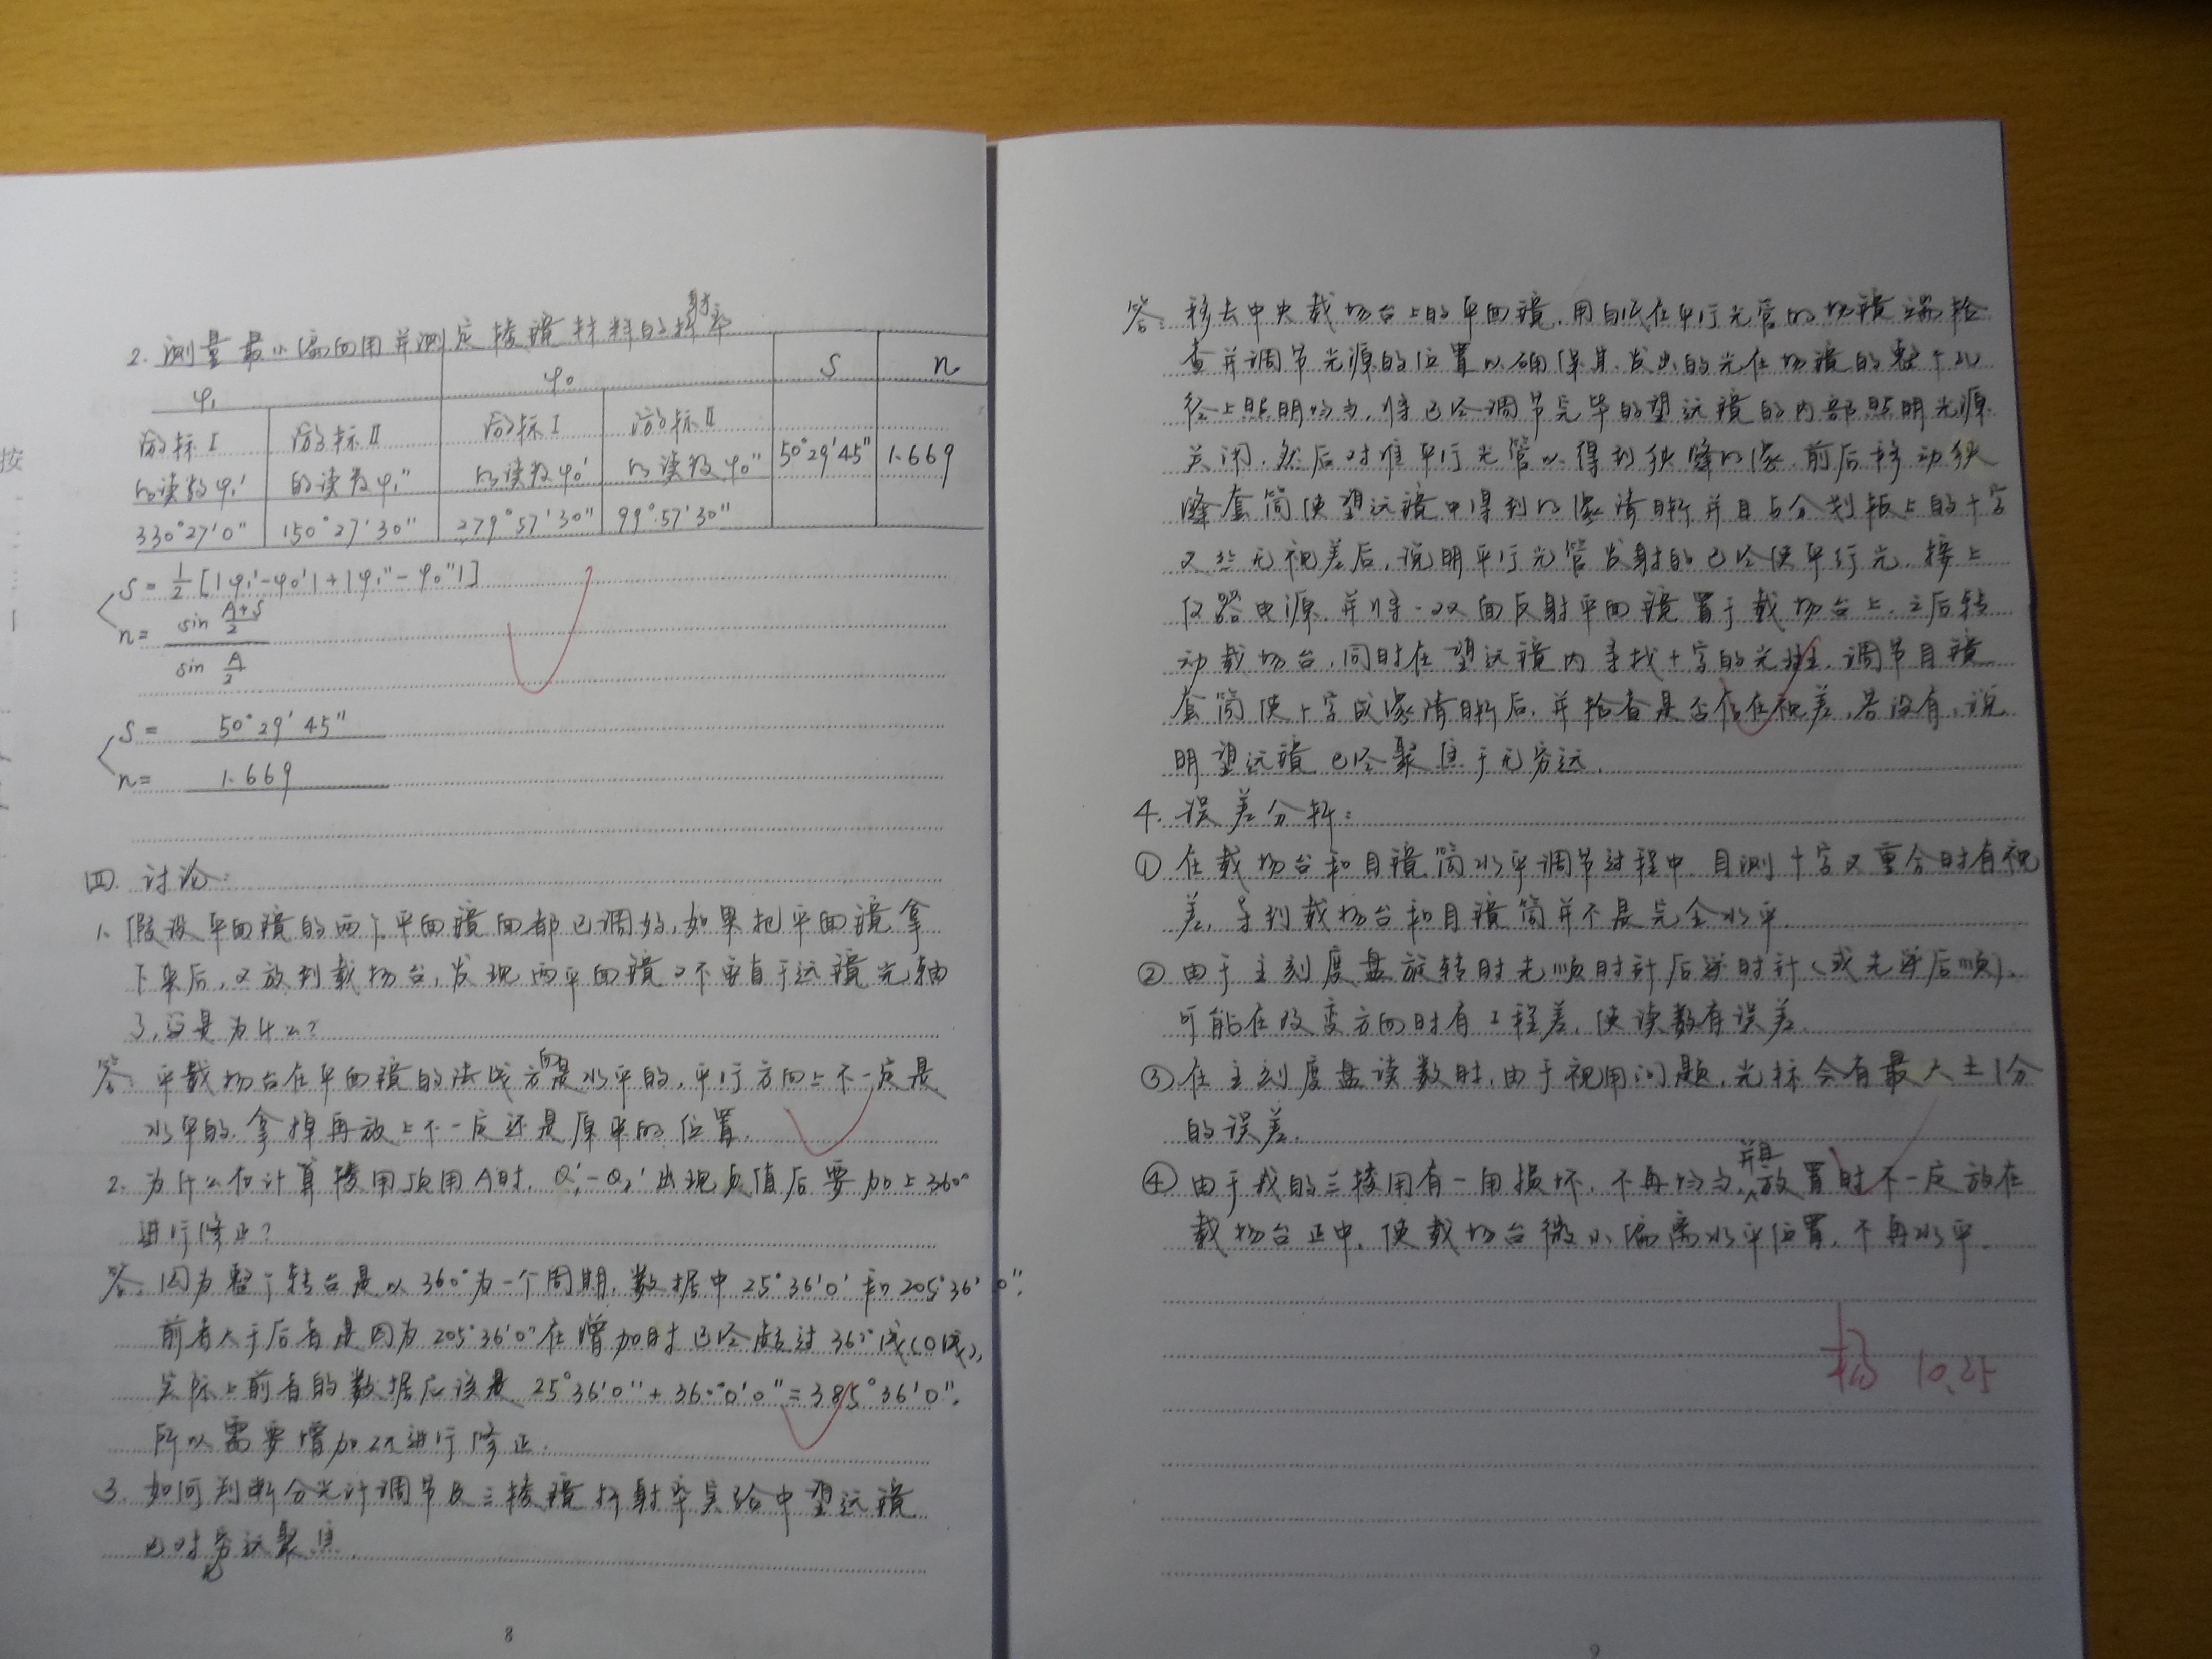 2. 测量最小偏向角并测定棱镜材料的折射率
φ₁ φ₀ S n
游标Ⅰ 游标Ⅱ 游标Ⅰ 游标Ⅱ
的读数φ₁′ 的读数φ₁″ 的读数φ₀′ 的读数φ₀″ 50°29′45″ 1.669
330°27′0″ 150°27′30″ 279°57′30″ 99°57′30″
S = 1/2 [|φ₁′-φ₀′|+|φ₁″-φ₀″|]
n = sin (A+S)/2 / sin A/2
S = 50°29′45″
n = 1.669
四. 讨论:
1. 假设平面镜的两个平面镜面都已调好,如果把平面镜拿
下来后,又放到载物台,发现两平面镜又不垂直于远镜光轴
了,这是为什么?
答: 平载物台在平面镜的法线方向是水平的,平行方向上不一定是
水平的,拿掉再放上不一定还是原来的位置.
2. 为什么在计算棱角顶角A时, 出现负值后要加上360°
进行修正?
答: 因为整个转台是以360°为一个周期,数据中25°36′0′和205°36′0″.
前者大于后者是因为205°36′0″在增加时已经越过360°线(0线),
实际上前者的数据应该是25°36′0″+360°0′0″=385°36′0″.
所以需要增加2π进行修正.
3. 如何判断分光计调节及三棱镜折射率实验中望远镜
已对无穷远聚焦.
8
答: 移去中央载物台上的平面镜,用白纸在平行光管的物镜端检
查并调节光源的位置以确保其发出的光在物镜的整个孔
径上照明均匀,将已经调节完毕的望远镜的内部照明光源
关闭,然后对准平行光管以得到狭缝的像,前后移动狭
缝套筒使望远镜中得到的像清晰并且与分划板上的十字
叉丝无视差后,说明平行光管发射的已经使平行光,接上
仪器电源,并将一双面反射平面镜置于载物台上,之后转
动载物台,同时在望远镜内寻找十字的光斑,调节目镜
套筒使十字成像清晰后,并检查是否存在视差,若没有,说
明望远镜已经聚焦于无穷远.
4. 误差分析:
① 在载物台和目镜筒水平调节过程中,目测十字叉重合时有视
差,导到载物台和目镜筒并不是完全水平.
② 由于主刻度盘旋转时先顺时针后逆时针(或先逆后顺),
可能在改变方向时有工程差,使读数有误差.
③ 在主刻度盘读数时,由于视角问题,光标会有最大±1分
的误差.
④ 由于我的三棱角有一角损坏,不再均匀,并且放置时不一定放在
载物台正中,使载物台微小偏离水平位置,不再水平.
杨 10.25
9